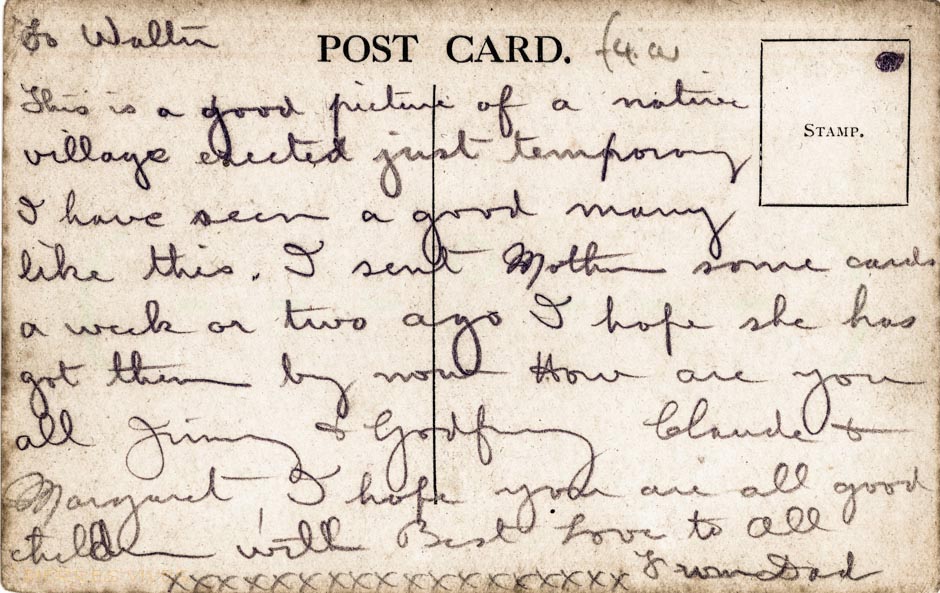 To Walter
POST CARD. (4.a
STAMP.
This is a good picture of a native
village erected just temporary
I have seen a good many
like this. I sent Mother some cards
a week or two ago I hope she has
got them by now How are you
all Jimmy & Godfrey Claude &
Margaret I hope you are all good
children with Best Love to All
From Dad
xxxxxxxxxxxxxxxxxxxxxx